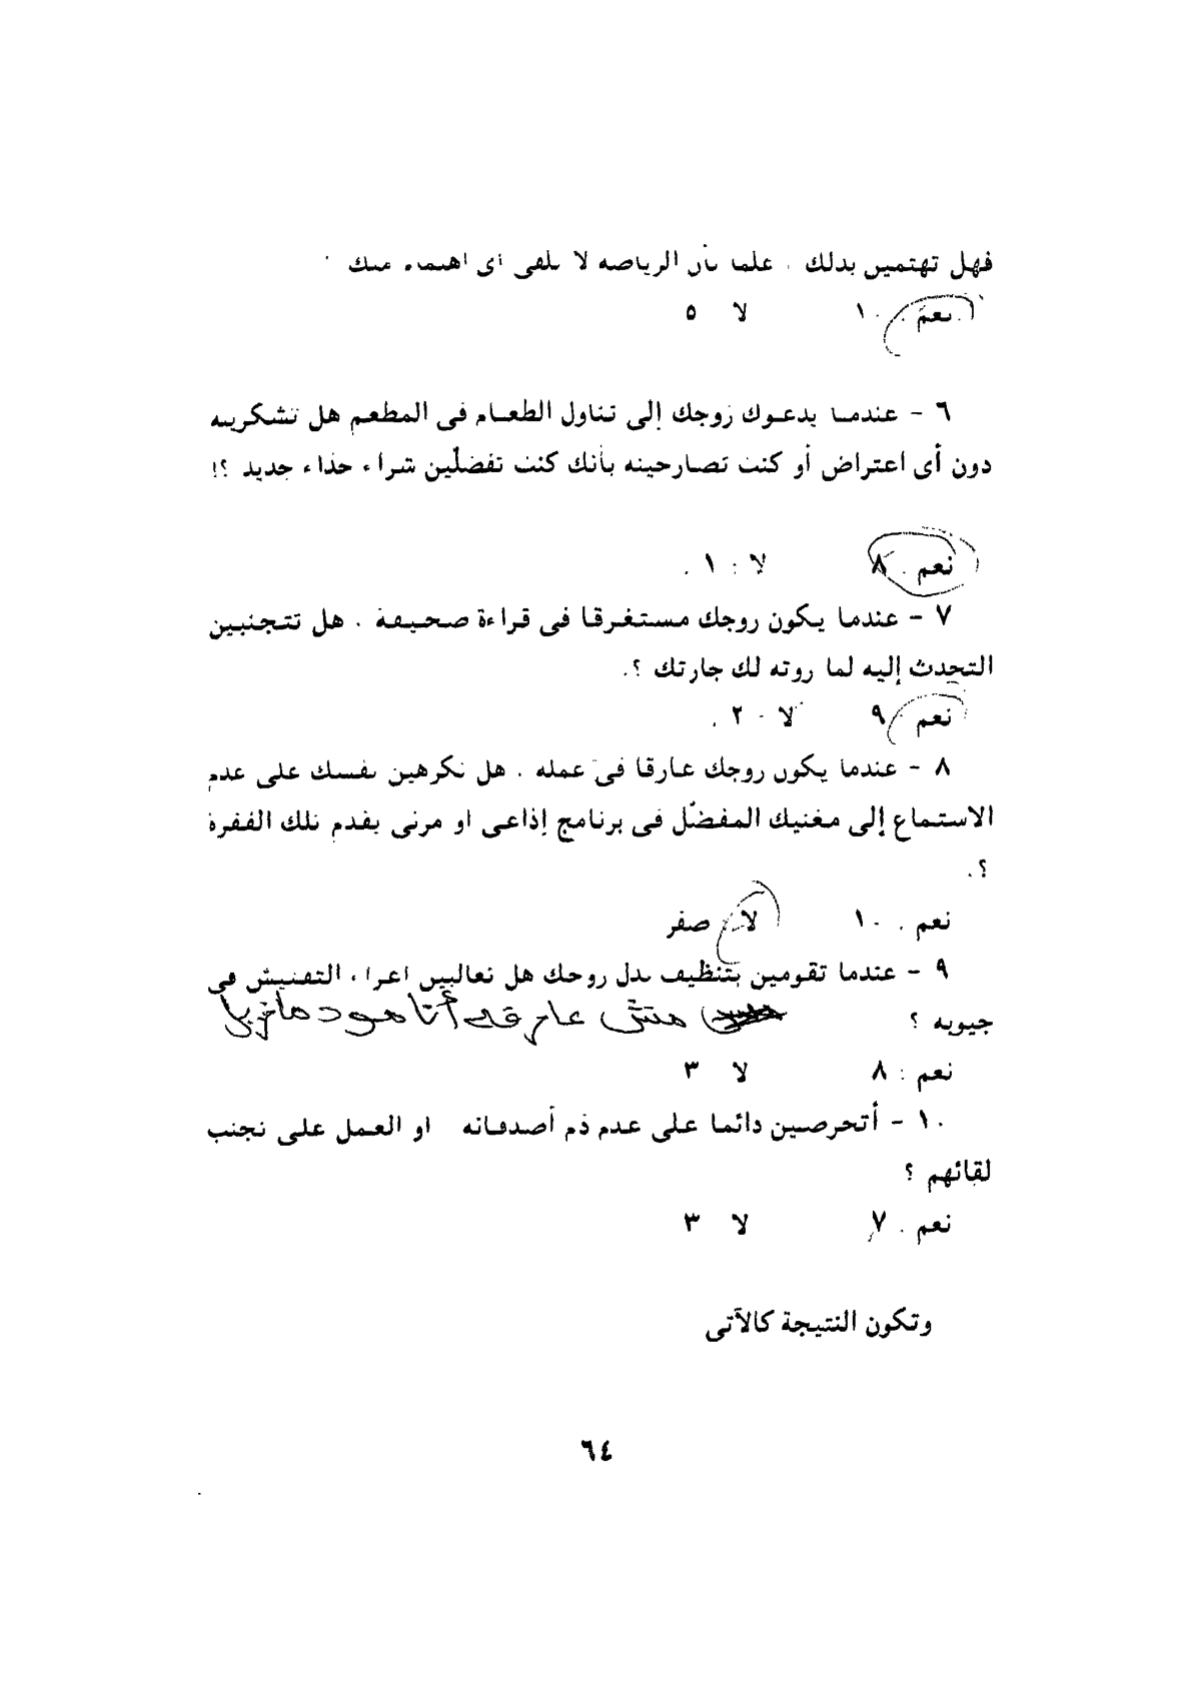 فهل تهتمين بذلك . علما بأن الرياضة لا تلقى أى اهتمام منك
نعم . ١٠ لا ٥
٦ - عندما يدعوك زوجك إلى تناول الطعام فى المطعم هل تشكرينه
دون أى اعتراض أو كنت تصارحينه بأنك كنت تفضلّين شراء حذاء جديد ؟!
نعم . ٨ لا : ١ .
٧ - عندما يكون زوجك مستغرقا فى قراءة صحيفة . هل تتجنبين
التحدث إليه لما روته لك جارتك ؟.
نعم ٩ لا ٢ .
٨ - عندما يكون زوجك غارقا فى عمله . هل تكرهين نفسك على عدم
الاستماع إلى مغنيك المفضّل فى برنامج إذاعى او مرئى يقدم تلك الفقرة
؟.
نعم . ١٠ لا : صفر
٩ - عندما تقومين بتنظيف بدل زوجك هل تغالبين اغراء التفتيش فى
جيوبه ؟ مش عارفه أنا هودهاتريا
نعم : ٨ لا ٣
١٠ - أتحرصين دائما على عدم ذم أصدقائه او العمل على تجنب
لقائهم ؟
نعم . ٧ لا ٣
وتكون النتيجة كالآتى
٦٤